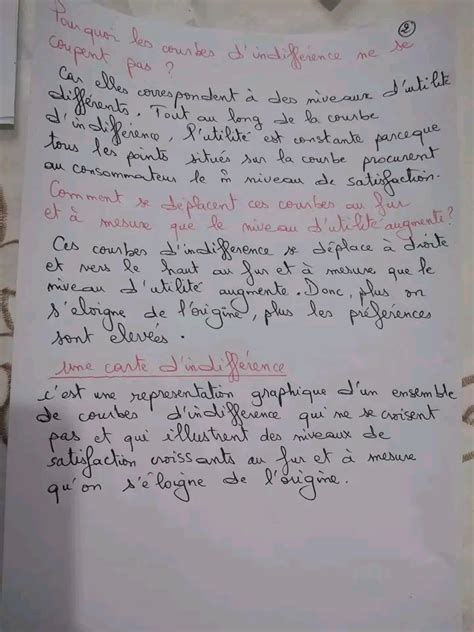 Pourquoi les courbes d'indifférence ne se
coupent pas ?
②
Car elles correspondent à des niveaux d'utilité
différents. Tout au long de la courbe
d'indifférence, l'utilité est constante parceque
tous les points situés sur la courbe procurent
au consommateur le m̂ niveau de satisfaction.
Comment se déplacent ces courbes au fur
et à mesure que le niveau d'utilité augmente ?
Ces courbes d'indifference se déplace à droite
et vers le haut au fur et à mesure que le
niveau d'utilité augmente. Donc, plus on
s'eloigne de l'origine, plus les préférences
sont elevées.
une carte d'indifférence
c'est une representation graphique d'un ensemble
de courbes d'indifférence qui ne se croisent
pas et qui illustrent des niveaux de
satisfaction croissants au fur et à mesure
qu'on s'éloigne de l'origine.